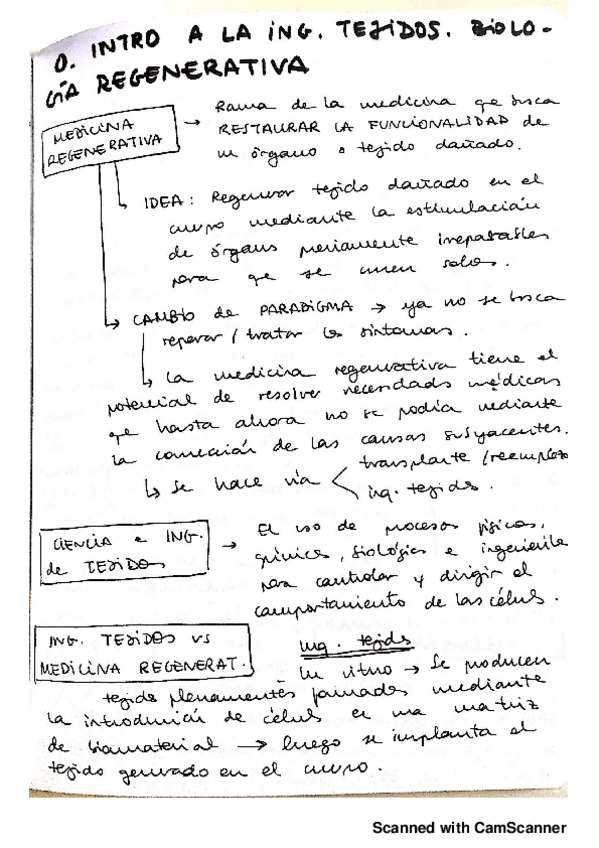 0. INTRO A LA ING. TEJIDOS. BIOLO-
GÍA REGENERATIVA
MEDICINA
REGENERATIVA
→ Rama de la medicina que busca
RESTAURAR LA FUNCIONALIDAD de
un órgano o tejido dañado.
IDEA: Regenerar tejido dañado en el
cuerpo mediante la estimulación
de órganos previamente irreparables
para que se curen solos.
CAMBIO de PARADIGMA → ya no se busca
reparar / tratar los síntomas.
La medicina regenerativa tiene el
potencial de resolver necesidades médicas
que hasta ahora no se podía mediante
la corrección de las causas subyacentes.
se hace vía < transplante / reemplazo
ing. tejidos.
CIENCIA e ING.
de TEJIDOS
→ El uso de procesos físicos,
químicos, biológicos e ingeniería
para controlar y dirigir el
comportamiento de las células.
ING. TEJIDOS VS
MEDICINA REGENERAT.
Ing. tejidos
- In vitro → Se producen
tejidos plenamentes formados mediante
la introducción de células en una matriz
de biomaterial → luego se implanta el
tejido generado en el cuerpo.
Scanned with CamScanner